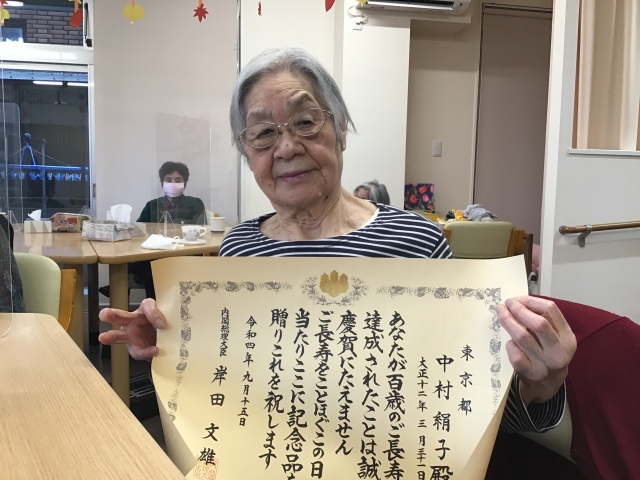 東京都
中村絹子殿
大正十二年三月三一日
あなたが百歳のご長寿
達成されたことは誠
慶賀にたえません
ご長寿をことほぐこの日
当たりここに記念品を
贈りこれを祝します
令和四年九月十五日
内閣総理大臣 岸田文雄